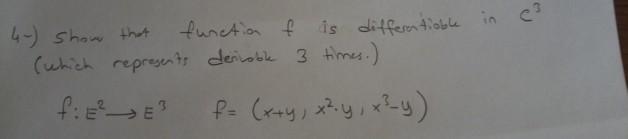 4-) Show that function f is differentiable in C³
(which represents derivable 3 times.)
f: E² → E³ f = (x+y, x².y, x³-y)